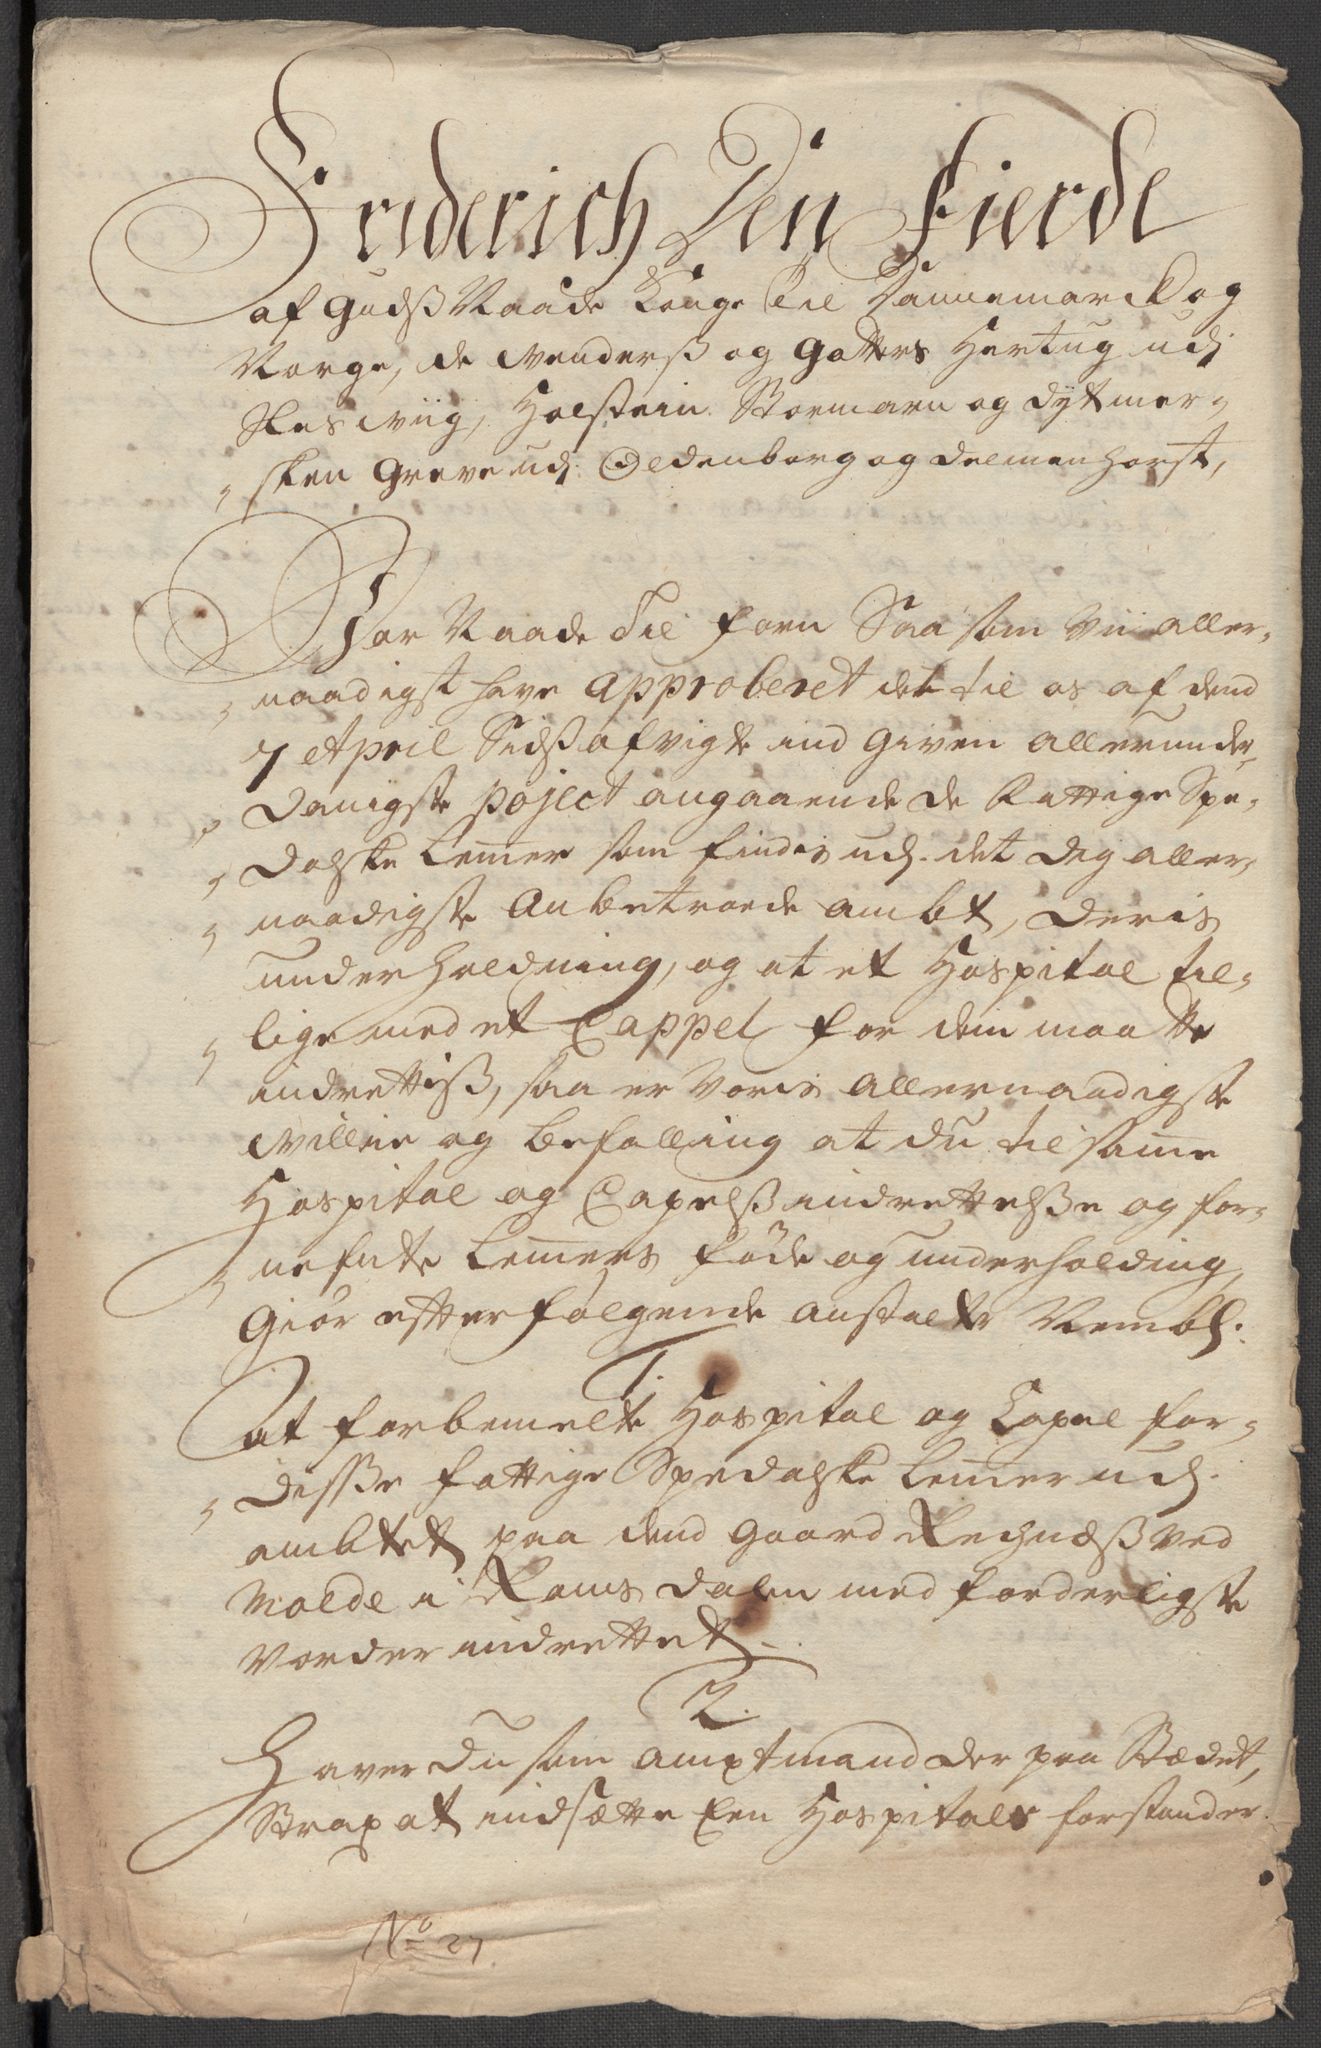 Friderich Den Fierde
af Gudß Naade Konge Til Dannemarck og
Norge, de Wenders og Gotters Hertug udj
Sleswiig, Holstein Stormarn og Dytmer-
sken Greve udj Oldenborg og Delmenhorst,
Vor Naade Til forn Saa som Vii aller-
naadigst have Approberet det til os af dend
7 April Sidst afvigte ind Given allerunder-
Danigste Poject angaaende de Fattige Spe-
dalske Lemer som findes udj det dig aller-
naadigste Anbetroede ambt, Deris
underholdning, og at et Hospital til-
lige med et Cappel for dem maatte
indrettiß, saa er Voris Allernaadigste
Willie og befalling at du til same
Hospital og Capelß indrettelße og for-
nefnte Lemers føde og underholding,
Giør efterfølgende anstalte Nembl:
1.
at forbemelte Hospital og Capel for-
diße fattige Spedalske Lemer udj
ambtet paa dend gaard Rechnæß ved
Molde i Romsdalen med forderligste
Vorder indrettet.
2.
Haver du som Amptmand der paa Stædet,
Strax at indsætte Een Hospitals forstander
No 27